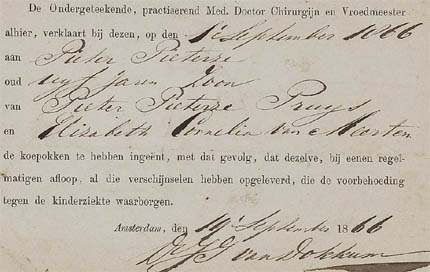 De Ondergeteekende, practiserend Med. Doctor Chirurgijn en Vroedmeester
alhier, verklaart bij dezen, op den 1e September 1866
aan Pieter Pieterze
oud vijf jaren Zoon
van Pieter Pieterze Pruys
en Elizabeth Cornelia van Meerten
de koepokken te hebben ingeënt, met dat gevolg, dat dezelve, bij eenen regel-
matigen afloop, al die verschijnselen hebben opgeleverd, die de voorbehoeding
tegen de kinderziekte waarborgen.
Amsterdam, den 19e September 1866
van Dokkum